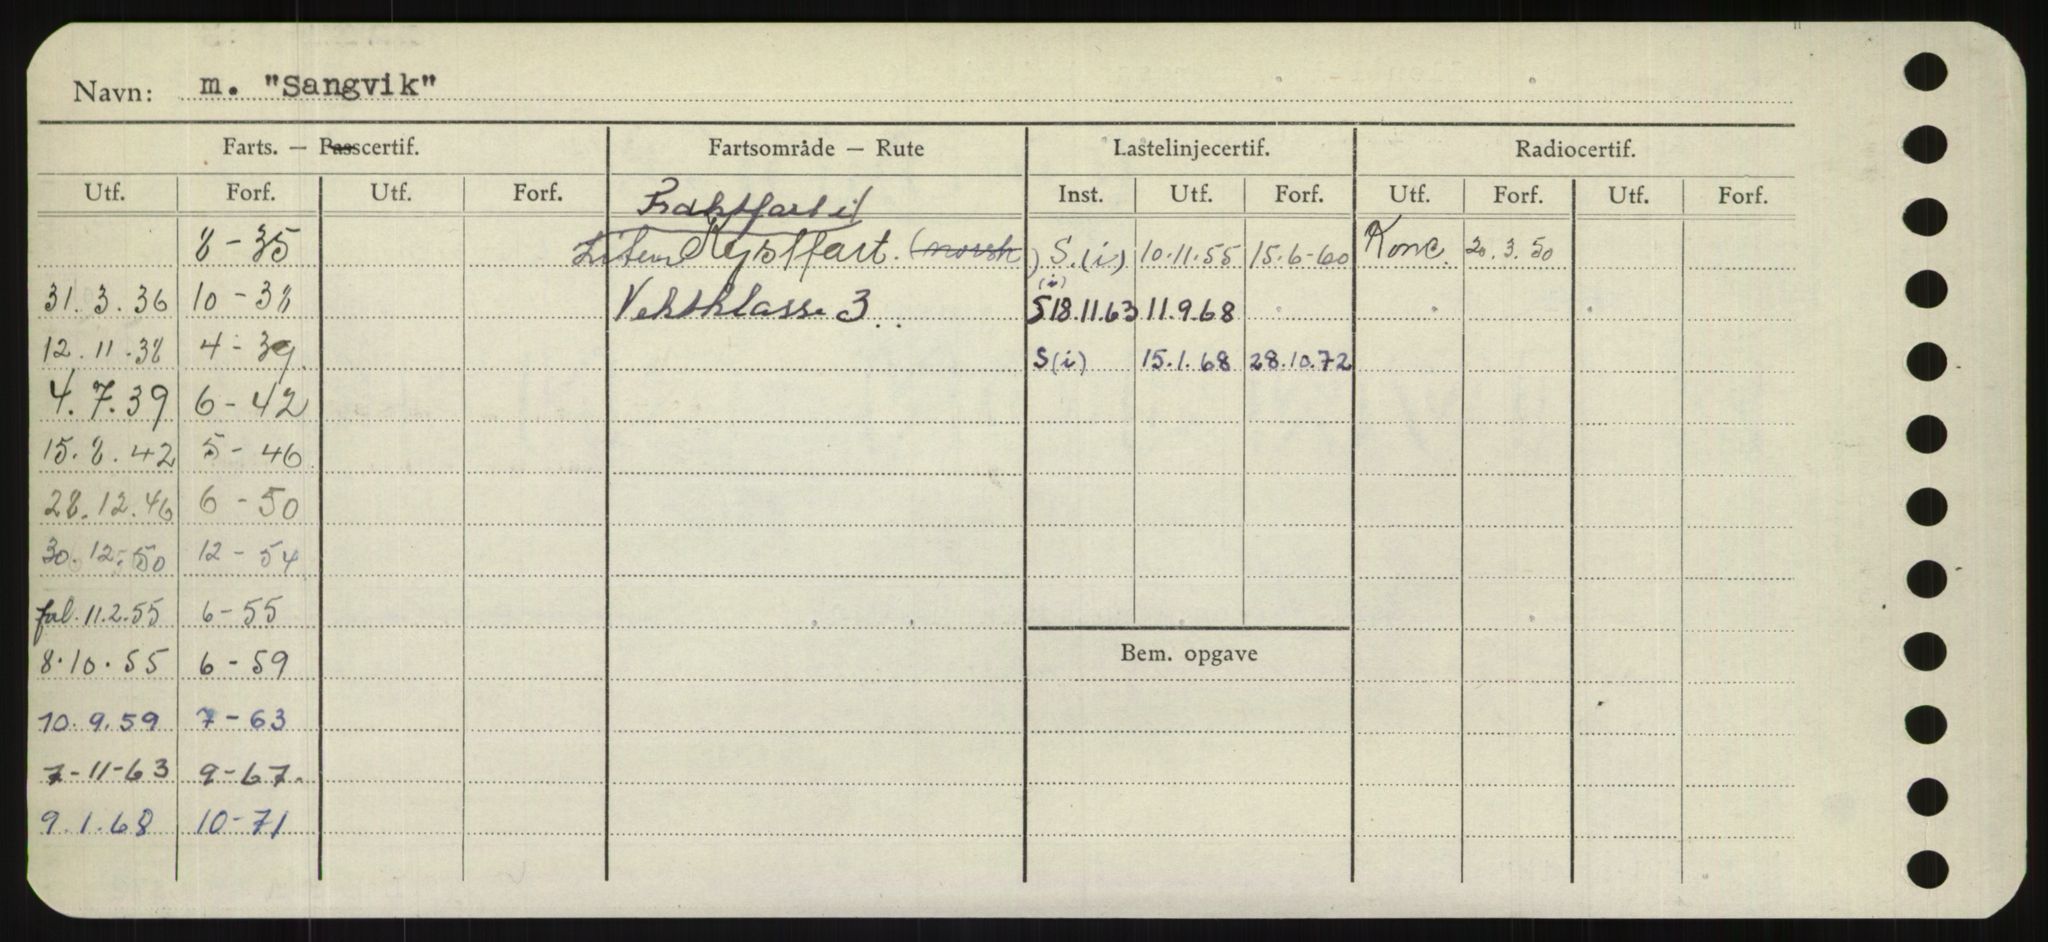 Navn: m. "Sangvik"
Farts. — Passcertif. Fartsområde — Rute Lastelinjecertif. Radiocertif.
Utf. Forf. Utf. Forf. Fraktfart i Inst. Utf. Forf. Utf. Forf. Utf. Forf.
8 - 35 Liten Kystfart. (norsk) S. (i) 10.11.55 15.6-60 Konc. 20.3.50
31.3.36 10 - 38 Vektklasse 3. S (i) 18.11.63 11.9.68
12.11.38 4 - 39. S (i) 15.1.68 28.10.72
4.7.39 6 - 42
15.8.42 5 - 46
28.12.46 6 - 50
30.12.50 12 - 54
11.2.55 6 - 55
8.10.55 6 - 59
Bem. opgave
10.9.59 7 - 63
7-11-63 9-67.
9.1.68 10-71